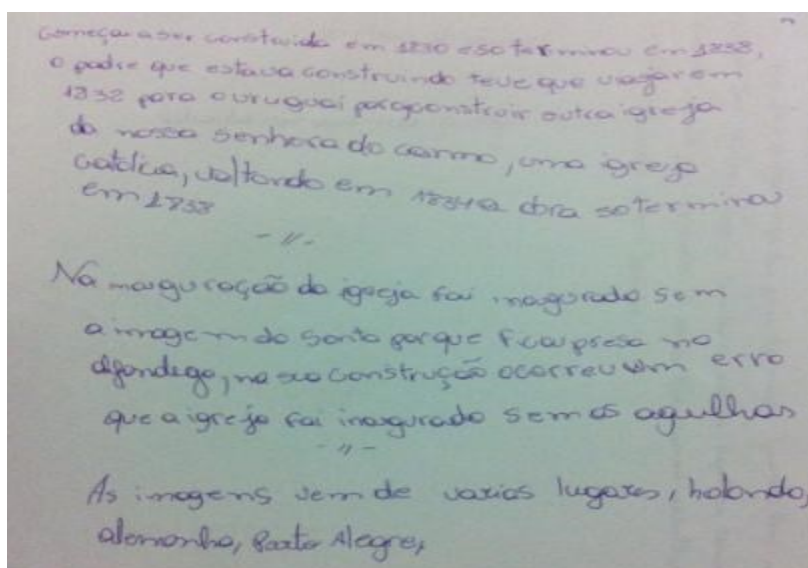 Começar a ser construida em e so terminou em
o padre que estava construindo teve que viajar em
1932 para o uruguai para construir outra igreja
da nossa senhora do carmo, uma igreja
catolica, voltando em a obra so terminou
em
- // -
Na inauguração da igreja foi inaugurado sem
a imagem do santo porque ficou presa na
alfandega, na sua construção ocorreu um erro
que a igreja foi inaugurado sem as agulhas
- // -
As imagens vem de varios lugares, holanda,
alemanha, Porto Alegre,